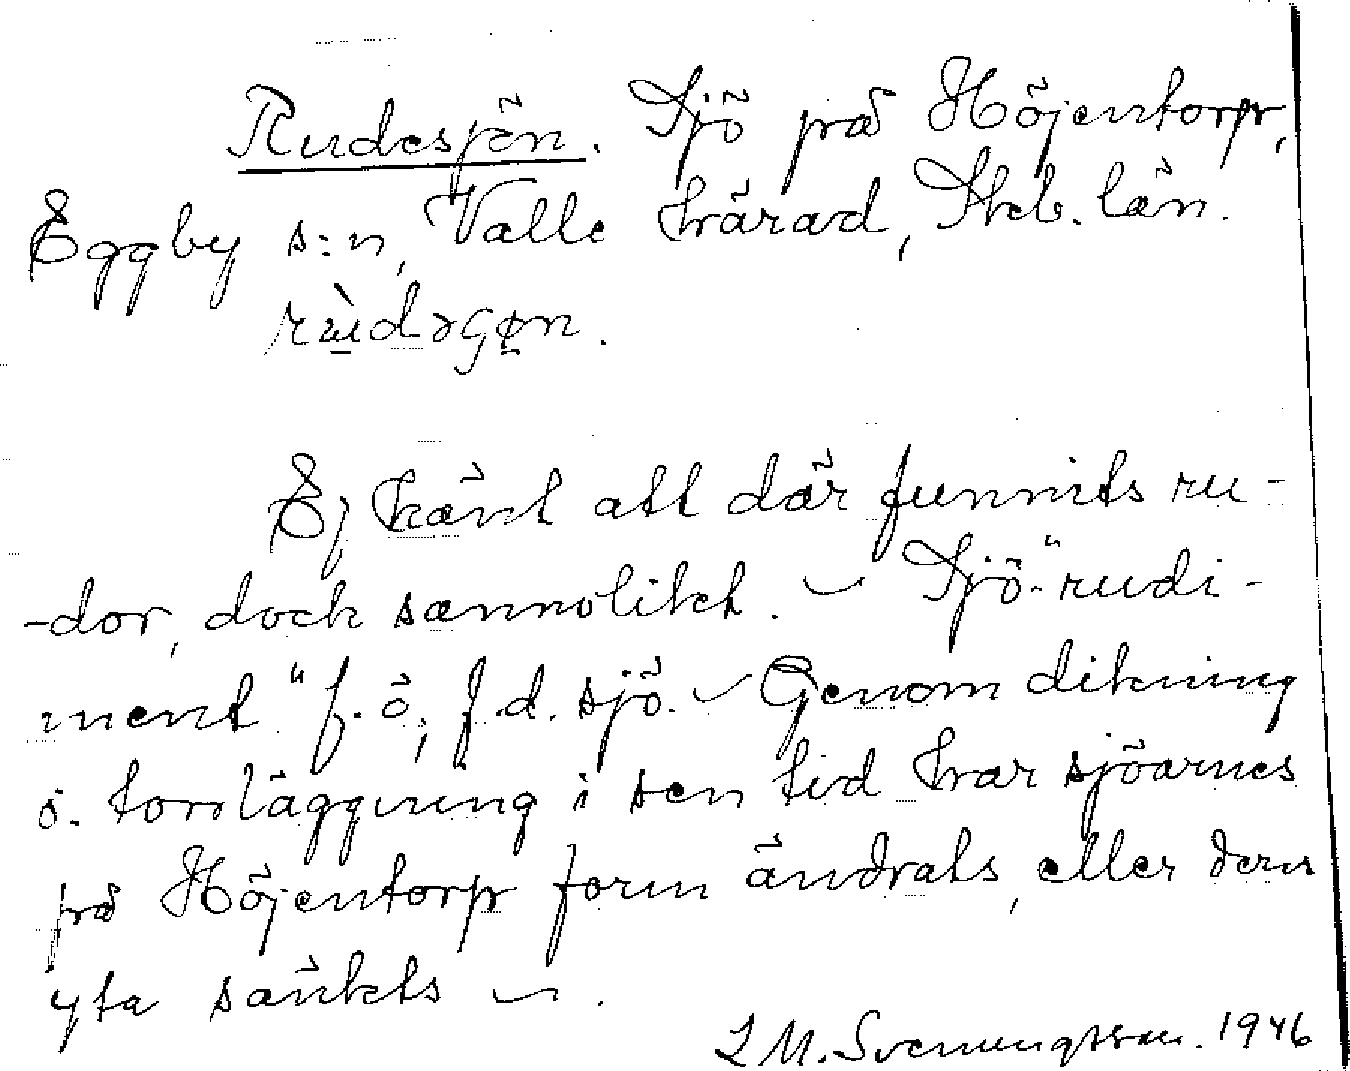 Rudesjön. Sjö på Höjentorp,
Eggby s:n, Valle härad, Skb. län.
Ej känt att där funnits ru-
-dor, dock sannolikt. ~ Sjö-"rudi-
ment" f. ö, f.d. sjö. ~ Genom dikning
o. torrläggning i sen tid har sjöarnes
på Höjentorp form ändrats, eller dess
yta sänkts ~.
L M. Svenungsson. 1946